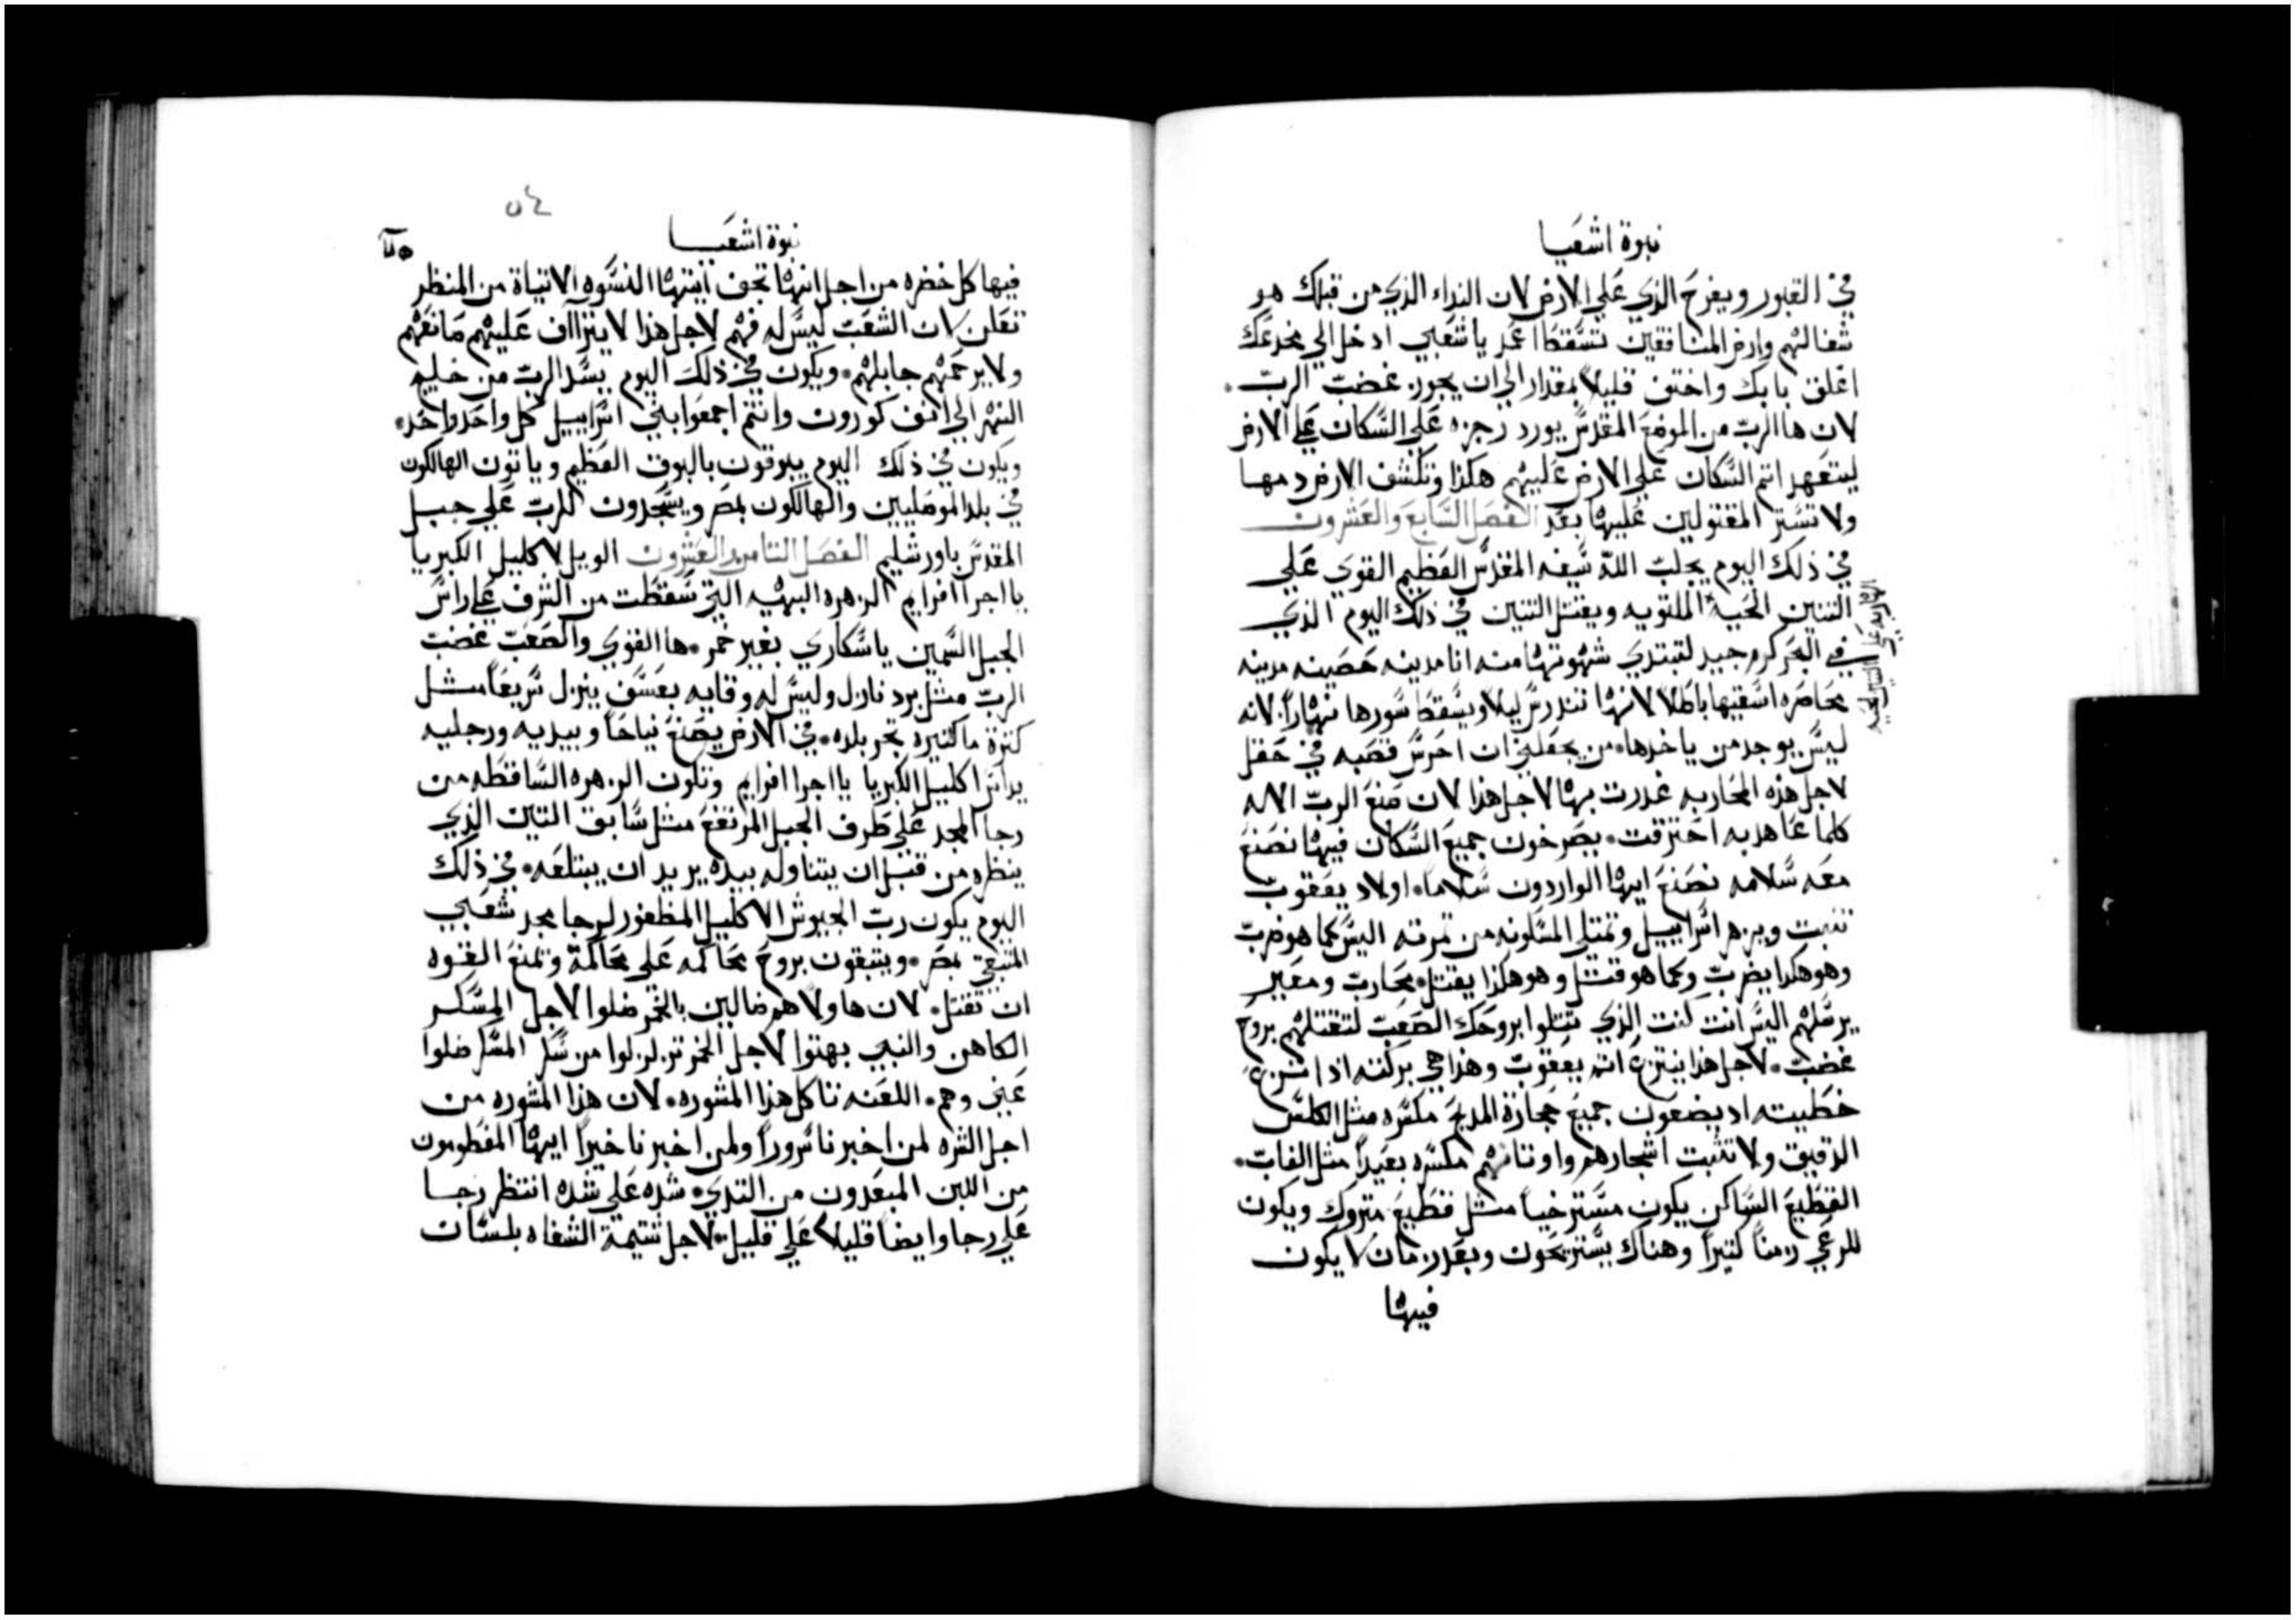 نبوة اشعيا
في القبور ويفرح الذي علي الارض لان النداء الذي من قبلك هو
شفا لهم وارض المنافقين تسقط امد يا شعبي ادخل الي مخدعك
اغلق بابك واختفي قليلاً بمقدار الي ان يجوز غضب الرب
لان ها الرب من الموضع المقدس يورد رجزه علي السكان علي الارض
ليتعهد اتم السكان علي الارض عليهم هكذا وتكشف الارض دمها
ولا تستر المقتولين عليها بعد الفصل السابع والعشرون
في ذلك اليوم يجلب الله سيفه المقدس العظيم القوي علي
التنين الحية الملتويه ويقتل التنين في ذلك اليوم الذي
في البحر كرم جيد لتبتدي شهوتها منه انا مدينه حصينه مدينه
محاصره اسقيها باطلا لانها تندرس ليلاً ويسقط سورها نهاراً لانه
ليس يوجد من ياخدها من يجعلني ان احرس قصبه في حقل
لاجل هذه المحاربه غدرت بها لاجل هذا لان صنع الرب الاله
كلما عاهد به احترقت يصرخون جميع السكان فيها نصنع
معه سلامه نصنع ايها الواردون سلاما اولاد يعقوب
تنبت ويزهر اسراييل وتمتلي المسكونه من تمرته اليس كما هو ضرب
وهو هكدا يضرب وكما هو قتل وهو هكذا يقتل محارب ومعير
يرسلهم اليس انت كنت الذي تتلوا بروحك الصعب لتقتلهم بروح
غضب لاجل هذا ينتزع اتم يعقوب وهذا هي بركته ادا انتزع
خطيته اد يضعون جميع حجارة المدبح مكسره مثل الكلس
الدقيق ولا تثبت اشجارهم واوتانهم مكسره بعيداً مثل الغاب
القطيع الساكن يكون مسترخياً مثل قطيع متروك ويكون
للرعي زمناً كتيراً وهناك يستريحون وبعد زمان لا يكون
فيها
٥٤
نبوة اشعيا
فيها كل خضره من اجل انها تجف ايتها النسوه الاتياة من المنظر
تعلن لان الشعب ليس له فهم لاجل هذا لا يتراآف عليهم صانعهم
ولا يرحمهم جابلهم ويكون في ذلك اليوم يسد الرب من خليج
النهر الي انف كورون وانتم اجمعوا بني اسراييل كل واحد واحد
ويكون في ذلك اليوم يبوقون بالبوق العظيم وياتون الهالكون
في بلد الموصليين والهالكون بمصر ويسجدون للرب علي جبل
المقدس باورشليم الفصل التامن والعشرون الويل لاكليل الكبريا
يا اجرا افرايم الزهره البهيه التي سقطت من الشرف علي راس
الجبل السمين يا سكاري بغير خمر ها القوي والصعب غضب
الرب مثل برد نازل وليس له وقايه بعسف ينزل سريعاً مثل
كترة ما كتيره تجر بلده في الارض يصنع نياحاً وبيديه ورجليه
يداس اكليل الكبريا يا اجرا افرايم وتكون الزهره الساقطه من
رجا المجد علي طرف الجبل المرتفع مثل سابق التين الذي
ينظره من قبل ان يتناوله بيده يريد ان يبتلعه في ذلك
اليوم يكون رب الجيوش الاكليل المظفور لرجا مجد شعبي
المتبقي بمصر ويتبقون بروح محاكمه علي محاكمة وتمنع القوه
ان تقتل لان هاولا هم ضالين بالخمر ضلوا لاجل المسكر
الكاهن والنبي بهتوا لاجل الخمر تزلزلوا من سكر المسكر ضلوا
عني وهم اللعنه تاكل هذا المشوره لان هذا المشوره من
اجل الشره لمن اخبرنا سروراً ولمن اخبرنا خيراً ايها المفطومون
من اللبن المبعدون من التدي شده علي شده انتظر رجا
علي رجا وايضا قليلا علي قليل لاجل شتيمة الشفاه بلسان